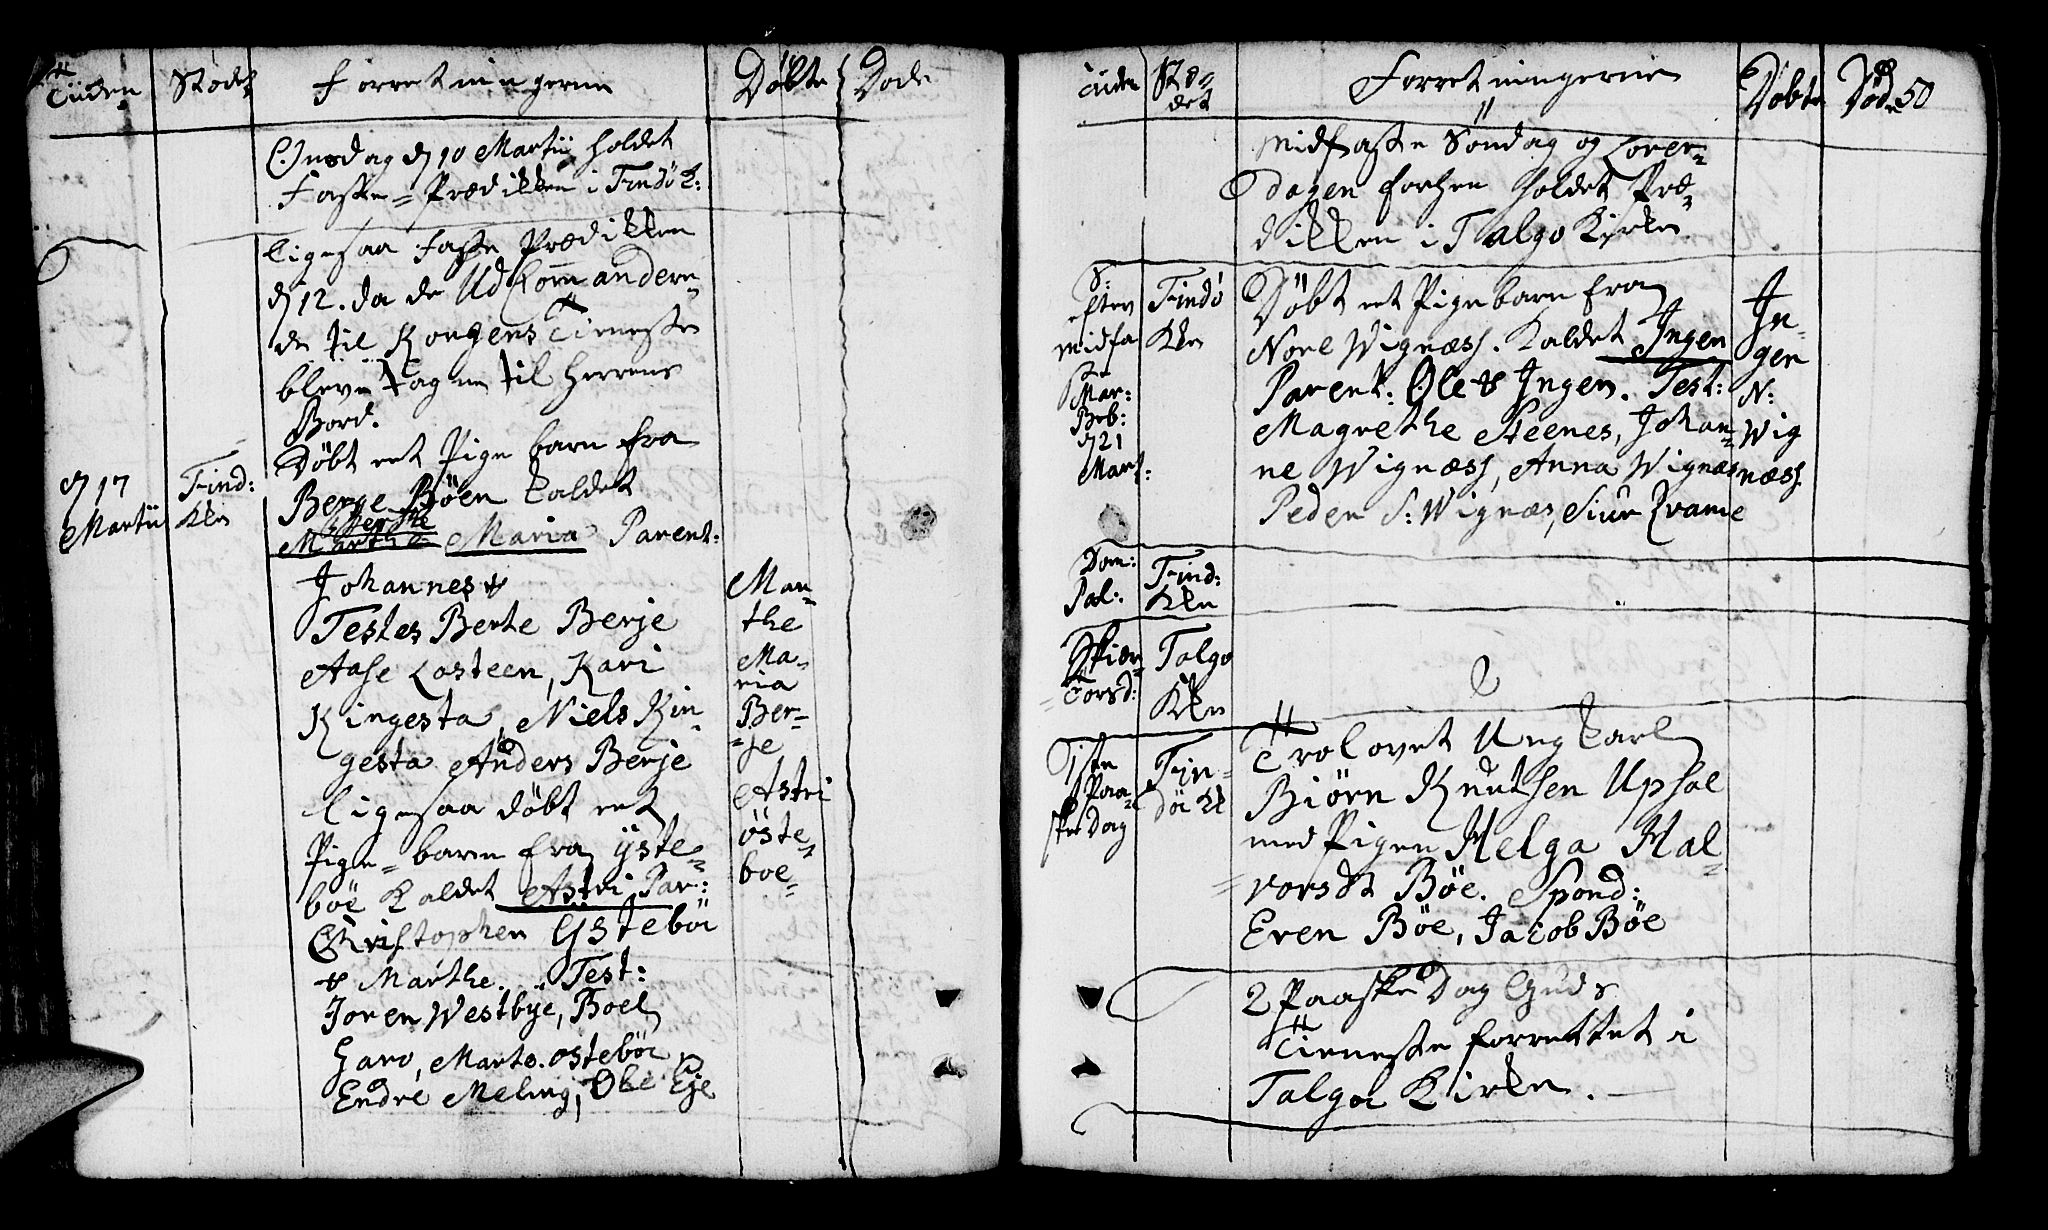 Tiiden Stedet Forretningerne Døbte Døde
Onsdag d 10 Martii holdet
Faste=Prædikken i Findø K:
Ligesaa Faste Prædikken
d 12. da de Udkom̄andere-
de til Kongens Tieneste
bleve tagne til Herrens
Bord.
d 17 Martii
Find: Kke
Døbt eet Pige barn fra
Berge Bøen kaldet
Berthe
Marthe Maria Parent:
Johannes &
Testes Berte Berje
Aase Losteen, Kari
Ringesta, Niels Rin-
gesta Anders Berje
Ligesaa døbt eet
Pige=barn fra ÿste-
böe Kaldet Astri, Par:
Christophen Ÿstebøe
& Marthe. Test:
Joren Westbÿe, Boel
Garo, Marte ostebøe
Endre Meling, Ole Eje
Mar-
the
Ma-
ria
Ber-
=je
Astri
öste-
boe-
Tiiden Ste-
det
Forretningerne Döbte Døde 50
Midfaste Søndag og Lover-
dagen forhen holdet Præ-
dikken i Talgø Kirke
S:
efter
midfa
ste
Mar:
Beb:
d 21
Mart:
Findø
Kke
Døbt eet Pigebarn fra
Nore Wignæss. Kaldet Ingen
Parent: Ole & Ingen. Test:
Magrethe Steenes, Johan-
ne Wignæss, Anna Wignæs
Peder S: Wignæs, Siur Qvame
In-
gen
N:
Wig
næss
Dom:
Pal:
Find:
Kke
Skier
Torsd:
Talgø
Kke
1ste
Paa-
ske Dag
Fin-
dø K
Trolovet Ung Karl
Biørn Knutsen Upsal
med Pigen Helga Hal-
vorsdt Bøe. Spond:
Even Bøe, Jacob Bøe
2 Paaske Dag Guds
Tieneste forrettet i
Talgø Kirke.